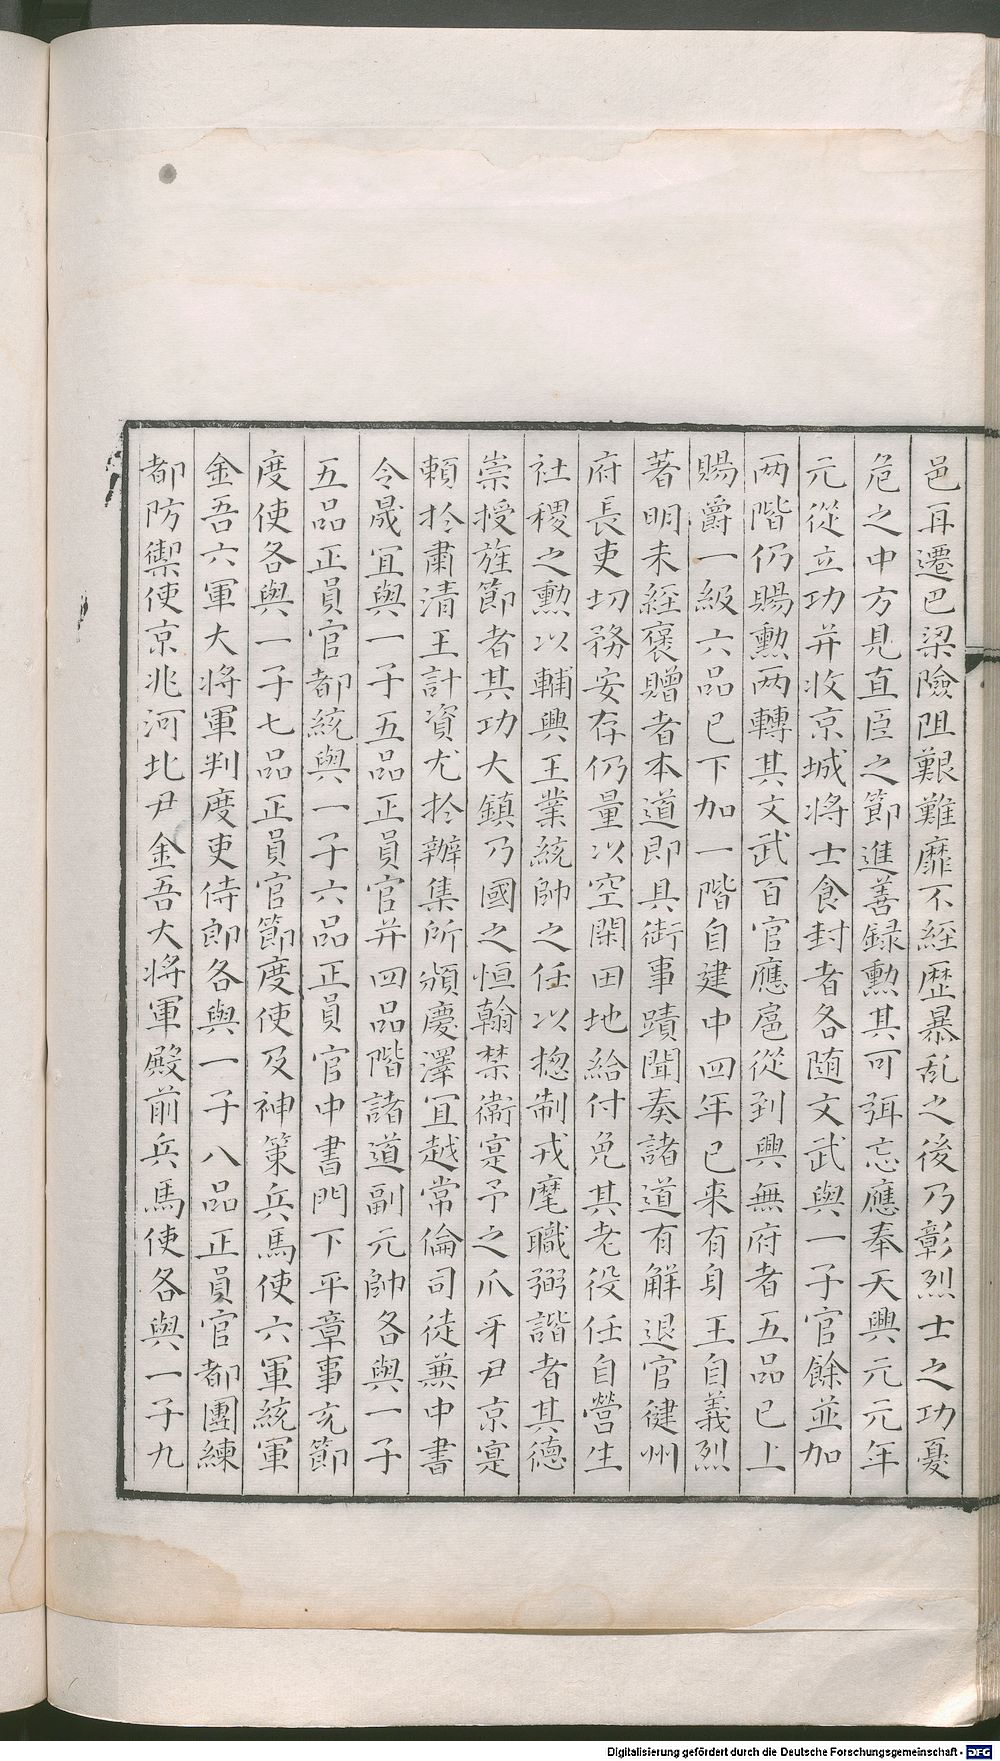 邑再遷巴梁險阻艱難靡不經歷暴乱之後乃彰烈士之功憂
危之中方見直臣之節進善録勲其可弭忘應奉天興元元年
元從立功并收京城将士食封者各随文武與一子官餘並加
两階仍賜勲两轉其文武百官應扈從到興無府者五品已上
賜爵一級六品已下加一階自建中四年已来有身王自義烈
著明未經褒贈者本道即具街事蹟聞奏諸道有解退官健州
府長吏切務安存仍量以空閑田地給付免其老役任自營生
社稷之勲以輔興王業統帥之任以揔制戎麾職弼諧者其德
崇授旌節者其功大鎮乃國之恒翰禁衞寔予之爪牙尹京寔
頼扵肅清王計資尤扵辦集所頒慶澤宜越常倫司徒兼中書
令晟宜與一子五品正員官并四品階諸道副元帥各與一子
五品正員官都統與一子六品正員官中書門下平章事充節
度使各與一子七品正員官節度使及神策兵馬使六軍統軍
金吾六軍大将軍判度吏侍郎各與一子八品正員官都團練
都防禦使京兆河北尹金吾大将軍殿前兵馬使各與一子九
Digitalisierung gefördert durch die Deutsche Forschungsgemeinschaft - DFG